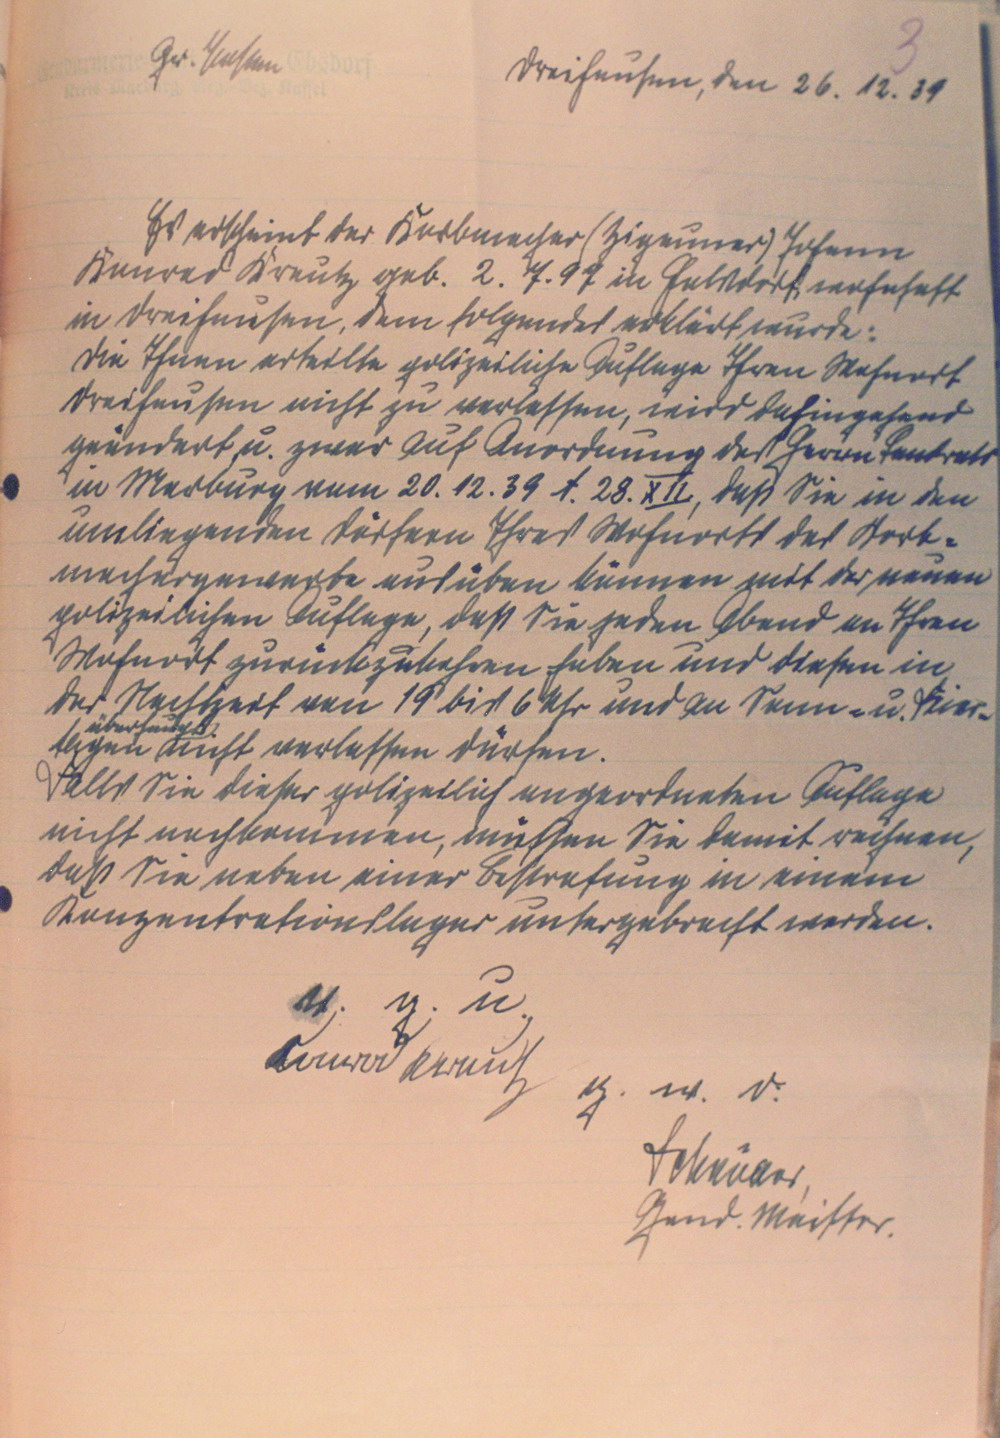 3
Ebsdorf.
Kreis Marburg, Reg.-Bez. Kassel
Dreihausen, den 26. 12. 39
Es erscheint der Korbmacher (Zigeuner) Johann
Konrad Kreutz geb. 2. 7. 97 in wohnhaft
in Dreihausen, dem folgendes erklärt wurde:
Die Ihnen erteilte polizeiliche Auflage Ihren Wohnort
Dreihausen nicht zu verlassen, wird dahingehend
geändert, u. zwar auf Anordnung des Herrn Landrats
in Marburg vom 20. 12. 39 A. 28. XII, daß Sie in den
umliegenden Dörfern Ihres Wohnorts das Korb-
machergewerbe ausüben können mit der neuen
polizeilichen Auflage, daß Sie jeden Abend an Ihren
Wohnort zurückzukehren haben und diesen in
der Nachtzeit von 19 bis 6 Uhr und an Sonn- u. Feier-
überhaupt
tagen nicht verlassen dürfen.
Falls Sie dieser polizeilich angeordneten Auflage
nicht nachkommen, müssen Sie damit rechnen,
daß Sie neben einer Bestrafung in einem
Konzentrationslager untergebracht werden.
v. g. u.
Konrad Kreutz
g. w. o.
Gend. Meister.